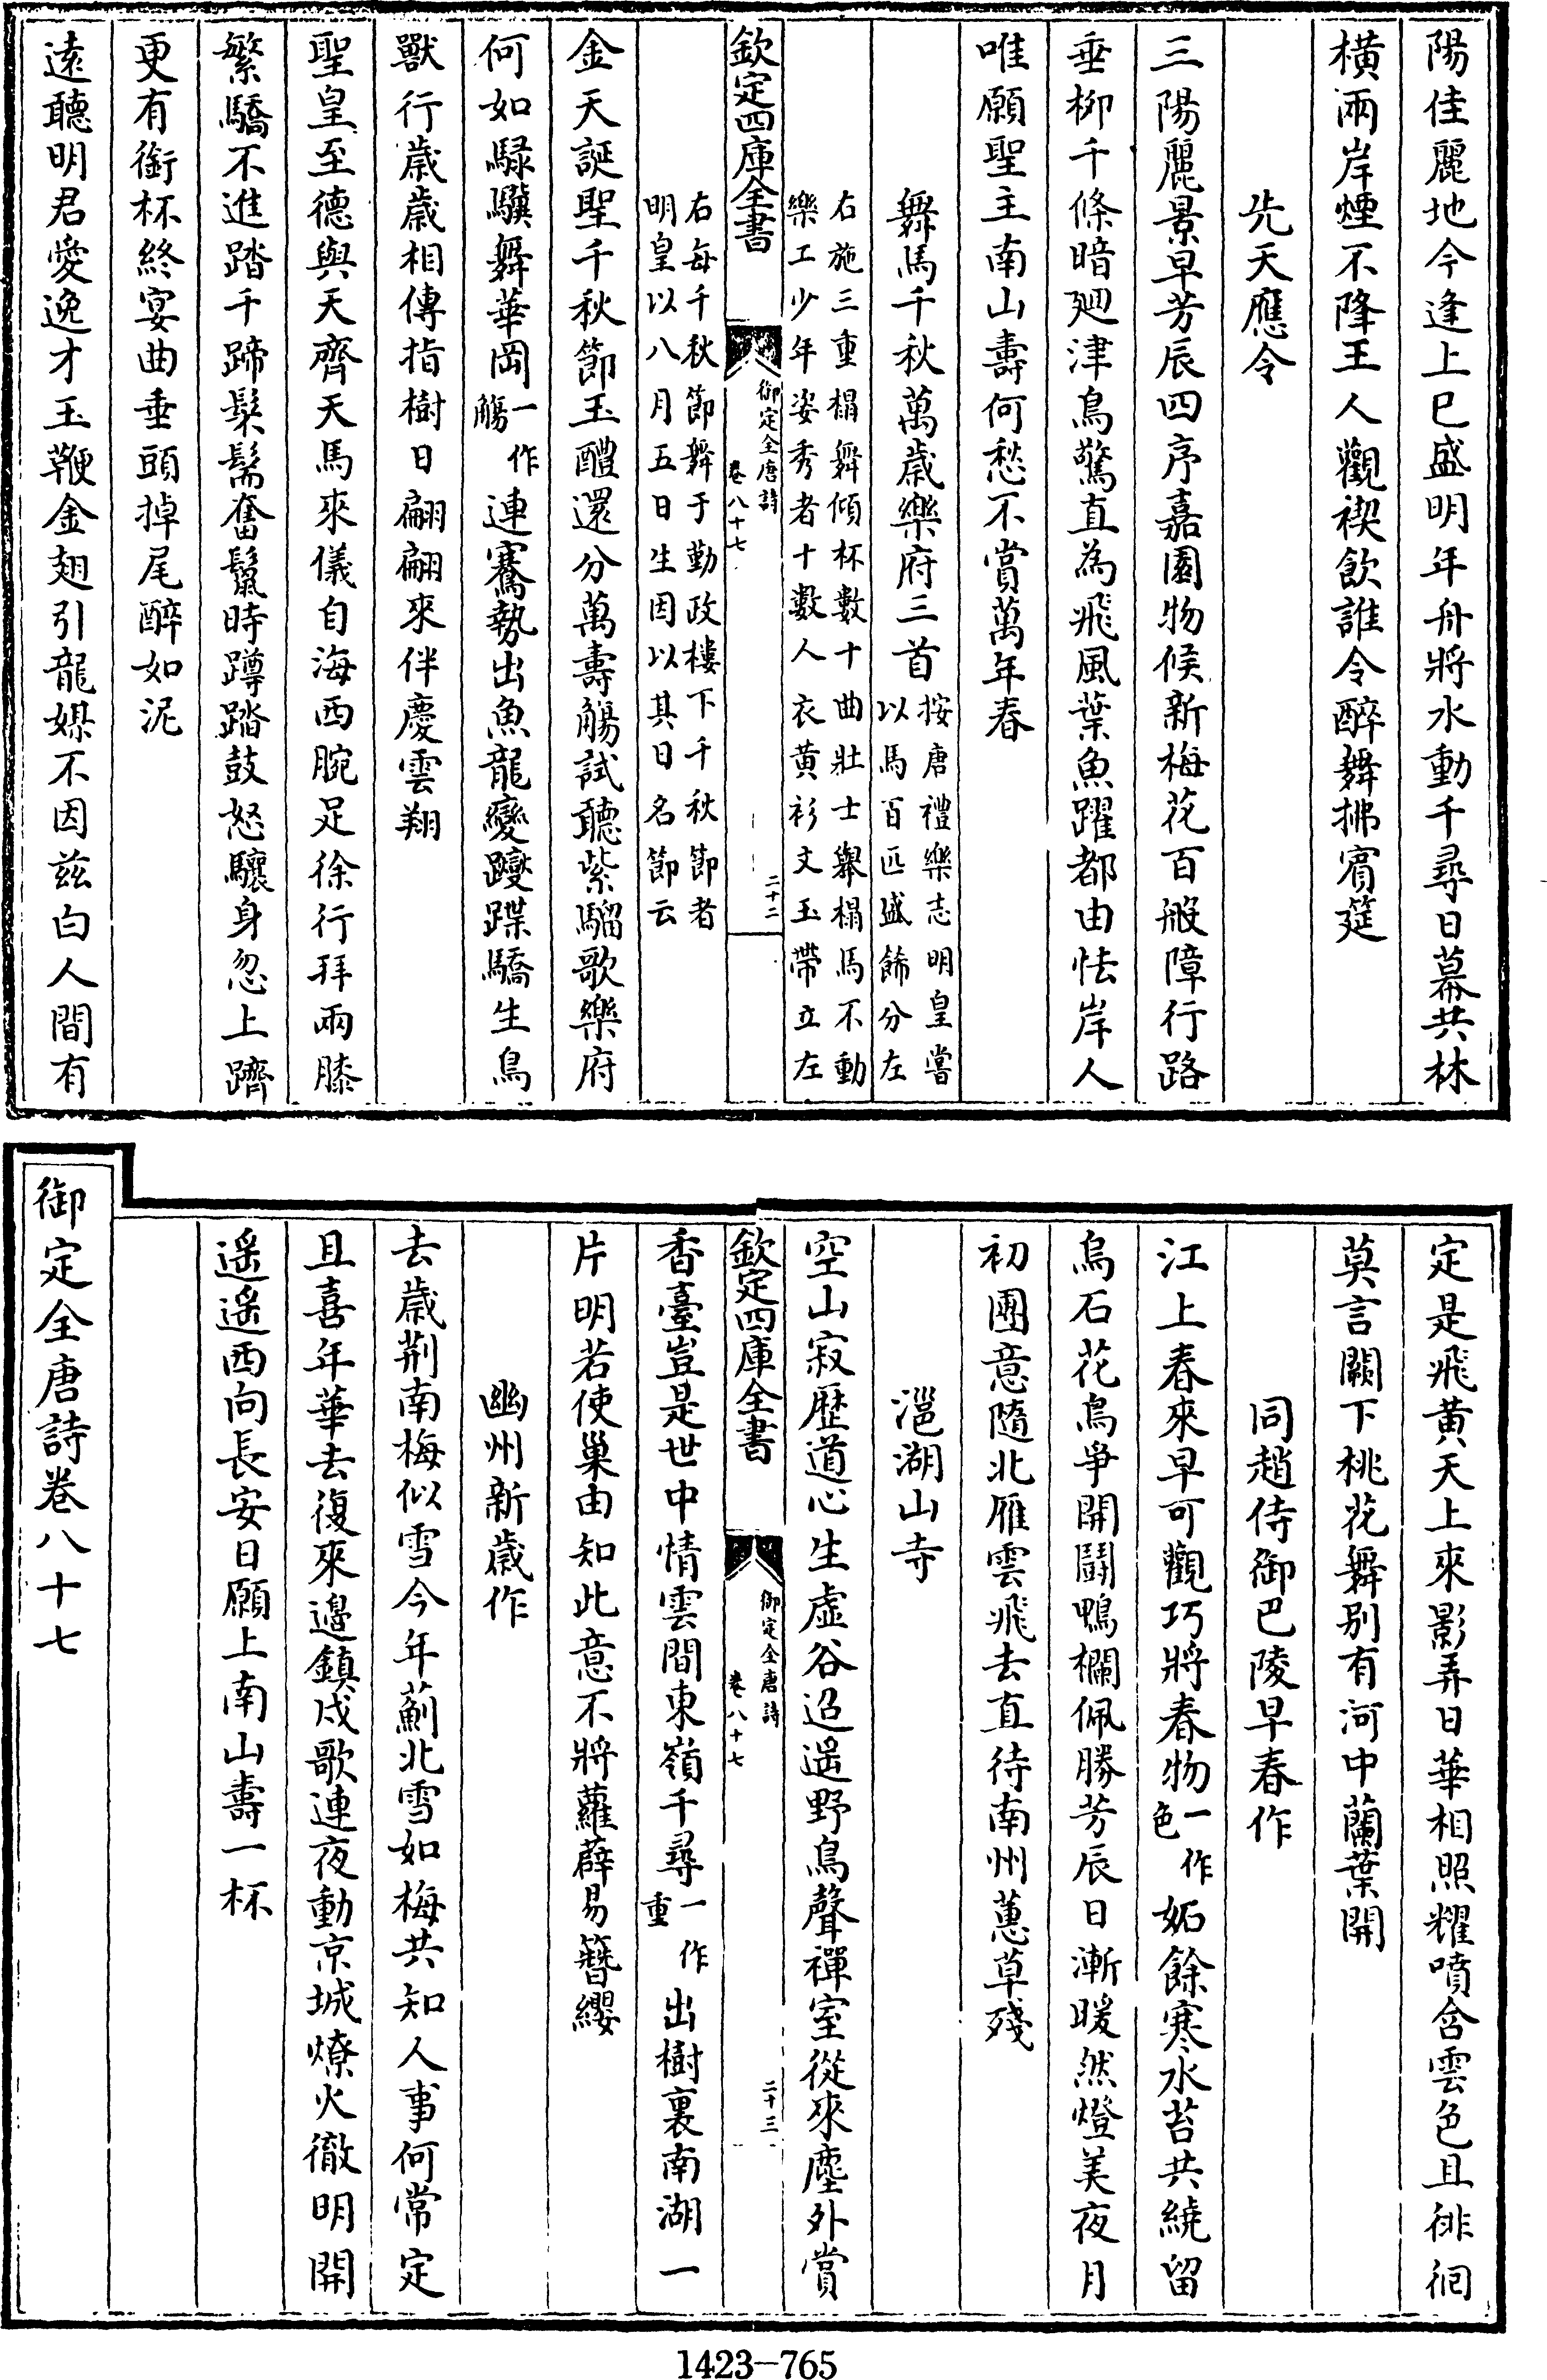 陽佳麗地今逢上巳盛明年舟將水動千尋日幕共林
橫兩岸煙不降王人觀禊飲誰令醉舞拂賓筵
先天應令
三陽麗景早芳辰四序嘉園物候新梅花百般障行路
垂柳千條暗廻津鳥驚直為飛風葉魚躍都由怯岸人
唯願聖主南山壽何愁不賞萬年春
舞馬千秋萬歲樂府三首按唐禮樂志明皇嘗以馬百匹盛飾分左
右施三重榻舞傾杯數十曲壯士舉榻馬不動樂工少年姿秀者十數人衣黄衫文玉帶立左
欽定四庫全書
御定全唐詩
卷八十七
二十二
右每千秋節舞于勤政樓下千秋節者明皇以八月五日生因以其日名節云
金天誕聖千秋節玉醴還分萬壽觴試聽紫騮歌樂府
何如騄驥舞華岡一作觴連騫勢出魚龍變躞蹀驕生鳥
獸行歲歲相傳指樹日翩翩來伴慶雲翔
聖皇至德與天齊天馬來儀自海西腕足徐行拜兩膝
繁驕不進踏千蹄髤髵奮鬛時蹲踏鼓怒驤身忽上躋
更有銜杯終宴曲垂頭掉尾醉如泥
遠聽明君愛逸才玉鞭金翅引龍媒不因兹白人間有
定是飛黄天上來影弄日華相照耀噴含雲色且徘徊
莫言闕下桃花舞别有河中蘭葉開
同趙侍御巴陵早春作
江上春來早可觀巧將春物一作色妬餘寒水苔共繞留
烏石花鳥爭開鬪鴨欄佩勝芳辰日漸暖然燈美夜月
初團意隨北雁雲飛去直待南州蕙草殘
㴩湖山寺
空山寂歷道心生虛谷迢遥野鳥聲禪室從來塵外賞
欽定四庫全書
御定全唐詩
卷八十七
二十三
香臺豈是世中情雲間東嶺千尋一作重出樹裏南湖一
片明若使巢由知此意不將蘿薜易簪纓
幽州新歲作
去歲荆南梅似雪今年薊北雪如梅共知人事何常定
且喜年華去復來邉鎮戍歌連夜動京城燎火徹明開
遥遥西向長安日願上南山壽一杯
御定全唐詩卷八十七
1423-765